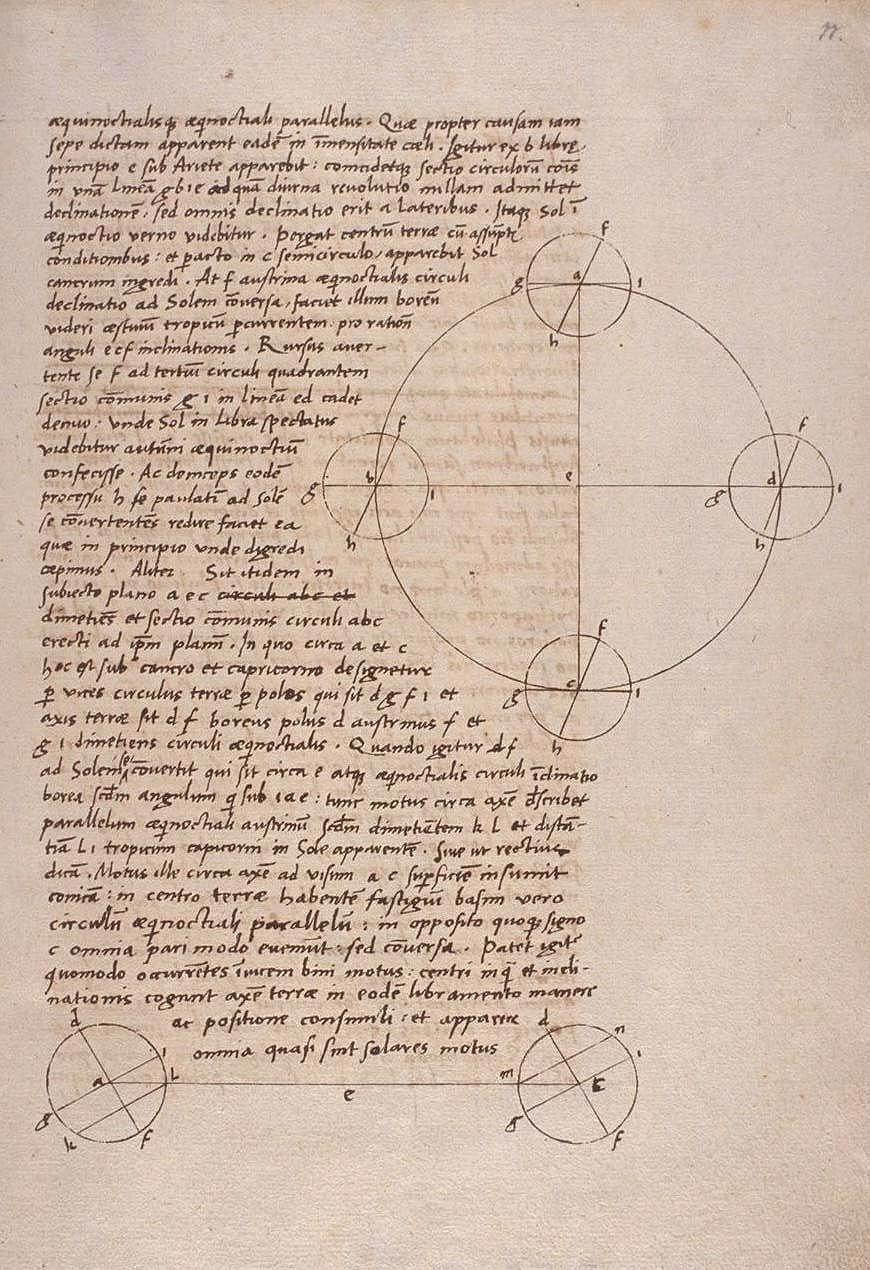 æquinoctialisq; æqnoctiali parallelus. Quæ propter causam iam
sepe dictam apparent eadē in im̄ensitate cœli. Igitur ex b libre,
principio e sub Ariete apparebit: coincidetq; sectio circulorū cōīs
in unā lineā g b i e ad quā diurna revolutio nullam admittet
declinationē, sed omnis declinatio erit a lateribus. Itaq; Sol ī
æqnoctio verno videbitur. Pergat centrū terræ cū assūptis
conditionibus: et pacto in c semicirculo, apparebit Sol
cancrum ingredi. At f austrina æqnoctialis circuli
declinatio ad Solem cōversa, faciet illum boreū
videri æstiuū tropicū pcurrentem pro ratiōn
anguli e c f inclinationis. Rursus auer-
tente se f ad tertiū circuli quadrantem
sectio cōmunis g i in lineā ed cadet
denuo: unde Sol in Libra spectatus
videbitur autūni æquinoctiū
confecisse. Ac deinceps eodē
processu h f se paulatī ad Solē
se cōvertentēs redire faciet ea
quæ in principio unde digredi
cœpimus. Aliter Sit itidem in
subiecto plano a e c circuli abc et
dimetiēs et sectio cōmunis circuli abc
erecti ad ipm planū. In quo circa a et c
hoc est sub cancro et capricorno designetur
p vices circulus terræ p polos qui sit d g f i et
axis terræ sit d f boreus polus d austrinus f et
g i dimetiens circuli æqnoctialis. Quando igitur d f
ad Solem se cōvertit qui sit circa e atq; æqnoctialis circuli īclinatio
borea scdm angulum q sub i a e: tunc motus circa axē dscribet
parallelum æqnoctiali austrinū scdm dimetiētem k l et distā-
tiā l i tropicum capricorni in Sole apparentē. Sive ut rectius
dicā. Motus ille circa axē ad visum a c supficiē insumit
conicā: in centro terræ habentē fastigiū basim vero
circulū æqnoctiali parallelū: in opposito quoq; signo
c omnia pari modo eveniūt: sed cōversa. Patet igit
quomodo occurrētes īvicem bini motus: centri inq et incli-
nationis cogunt axē terræ in eodē libramento manere
ac positione consimili: et apparere
omnia quasi sint solares motus
f
g a i
h
f
g b i
h
e
f
d
g i
h
f
g c i
h
d
i
a L
g
k f
e
d n
i
m c
g
f